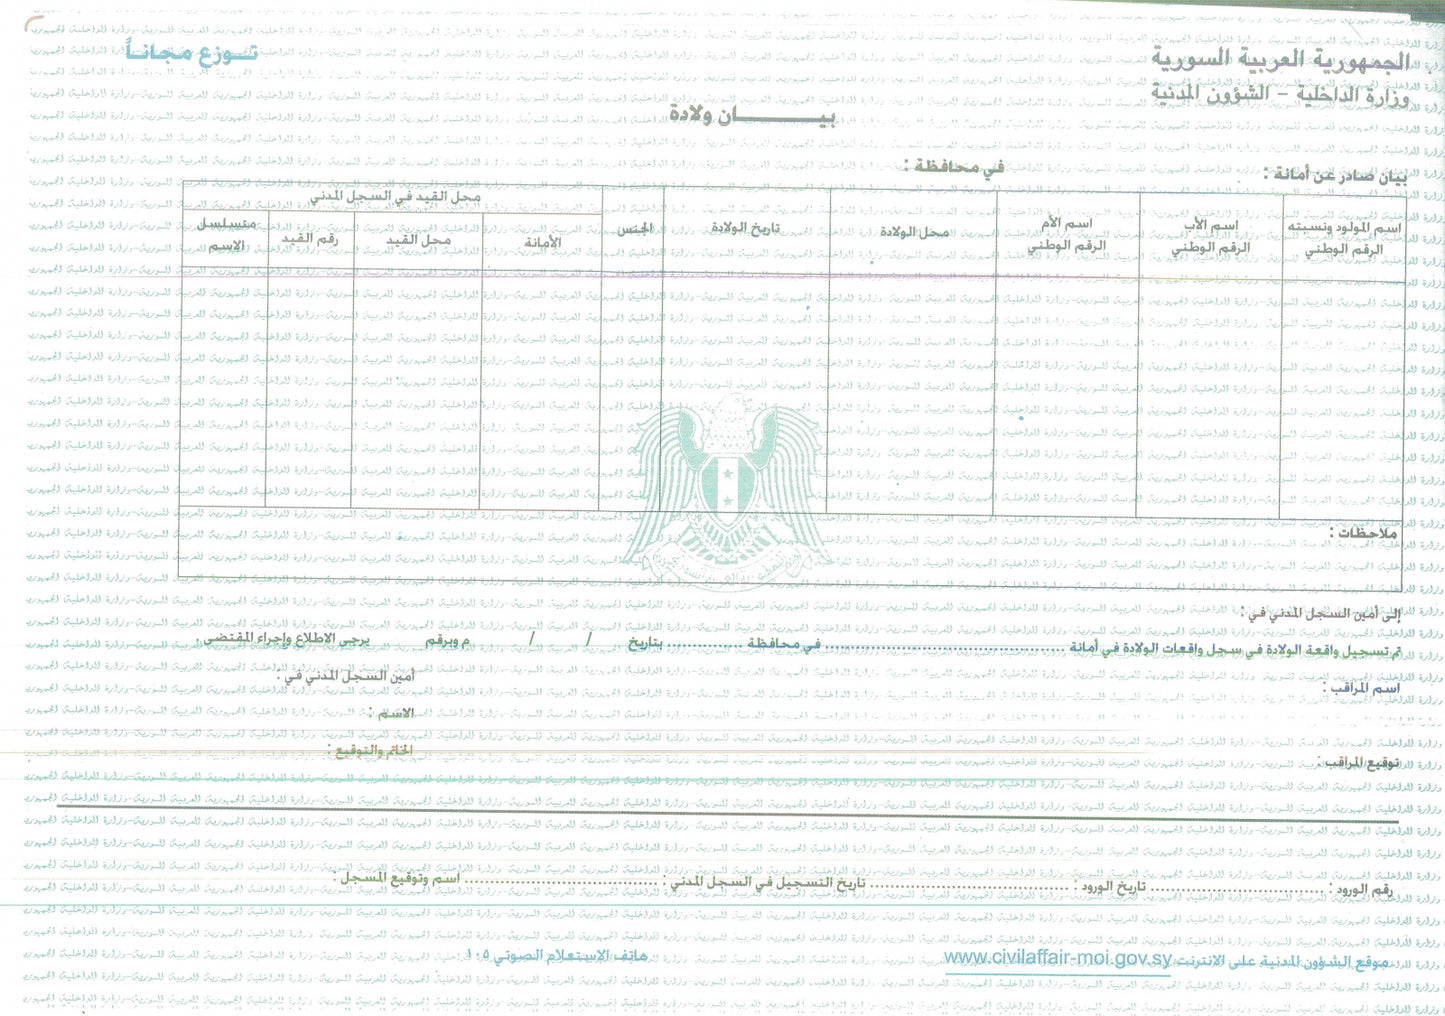 الجمهورية العربية السورية
توزع مجاناً
وزارة الداخلية - الشؤون المدنية
بيـــــــان ولادة
بيان صادر عن أمانة : في محافظة :
اسم المولود ونسبته الرقم الوطني
اسم الأب الرقم الوطني
اسم الأم الرقم الوطني
محل الولادة
تاريخ الولادة
الجنس
محل القيد في السجل المدني
الأمانة
محل القيد
رقم القيد
متسلسل الاسم
ملاحظات :
إلى أمين السجل المدني في :
تم تسجيل واقعة الولادة في سجل واقعات الولادة في أمانة .............................. في محافظة ............... بتاريخ / / م وبرقم يرجى الاطلاع وإجراء المقتضى .
اسم المراقب :
أمين السجل المدني في :
الاسم :
توقيع المراقب :
الخاتم والتوقيع :
رقم الورود : .............................. تاريخ الورود : .............................. تاريخ التسجيل في السجل المدني : .............................. اسم وتوقيع المسجل :
موقع الشؤون المدنية على الانترنت www.civilaffair-moi.gov.sy
هاتف الاستعلام الصوتي ١٠٥
الجمهورية العربية السورية-وزارة الداخلية